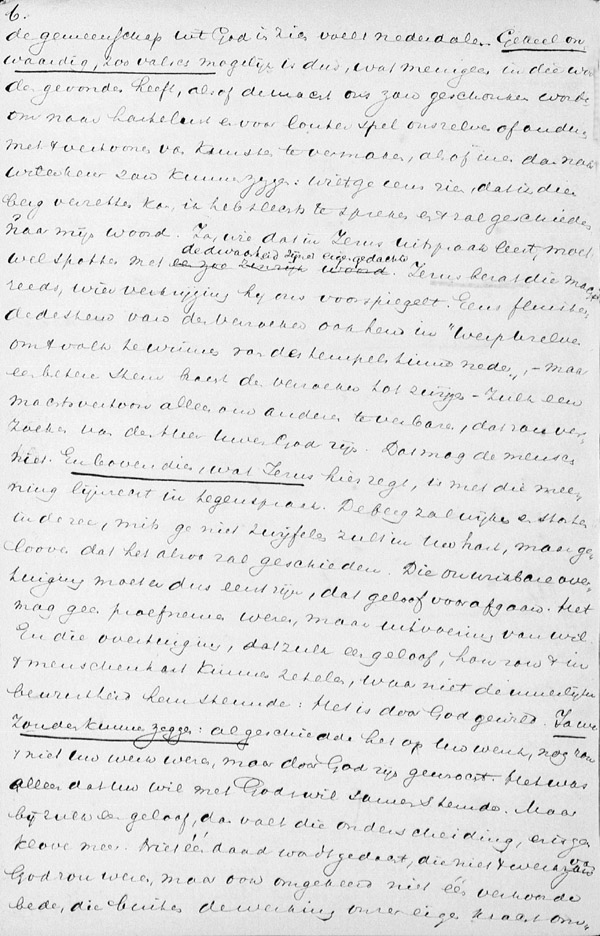 6.
de gemeenschap met God is hier voelt nederdalen. Geheel on-
waardig, zoo valsch mogelijk is dus, wat menigeen in die woor-
den gevonden heeft, alsof de macht ons zou geschonken worden
om naar hartelust en voor louter spel onszelven of anderen
met 't vertoonen van kunsten te vermaken, alsof men dan naar
willekeur zou kunnen zeggen: wilt ge eens zien, dat ik dien
berg verzetten kan, ik heb slechts te spreken en 't zal geschieden
naar mijn woord. Ja, wie dat in Jezus uitspraak leest, moet
de dwaasheid zijner eigen gedachte
wel spotten met een zoo woord. Jezus kent die macht
reeds, wier verkrijging hij ons voorspiegelt. Eens fluister-
de de stem van den verzoeker ook hem in "Werp u zelven
om 't volk te winnen van des tempels tinne neder," – maar
een betere stem bracht den verzoeker tot zwijgen – Zulk een
machtsvertoon alleen om anderen te verbazen, dat zou ver-
zoeken van den Heer Uwen God zijn. Dat mag de mensch
niet. En bovendien, wat Jezus hier zegt, is met die mee-
ning lijnrecht in tegenspraak. De berg zal wijken en storten
in de zee, mits ge niet twijfelen zult in Uw hart, maar ge-
looven dat het alzoo zal geschieden. Die onwrikbare over-
tuiging moet er dus eerst zijn, dat geloof vooraf gaan. Het
mag geen proefneming wezen, maar uitvoering van wil.
En die overtuiging, dat zulk een geloof, hoe zou 't in
't menschenhart kunnen zetelen, waar niet de innerlijke
bewustheid hem stemde: Het is door God gewild. Ja we
zouden kunnen zeggen: al geschiedde het op Uw wenk, nog zou
't niet Uw werk wezen, maar door God zijn gewrocht. Het was
alleen dat Uw wil met Gods wil samenstemde. Maar
bij zulk een geloof, dan valt die onderscheiding, er is geen
klove meer. Niet één daad wordt gedacht, die niet 't werk van
God zou wezen, maar ook omgekeerd niet één verhoorde
bede, die buiten de werking onzer eigen kracht om-